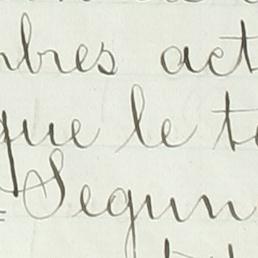 bres act
que le to
Segun